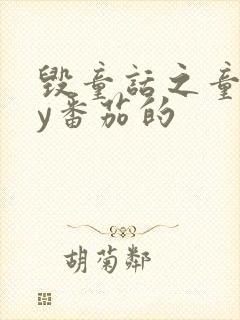 毁童话之童
y番茄的
胡菊邻